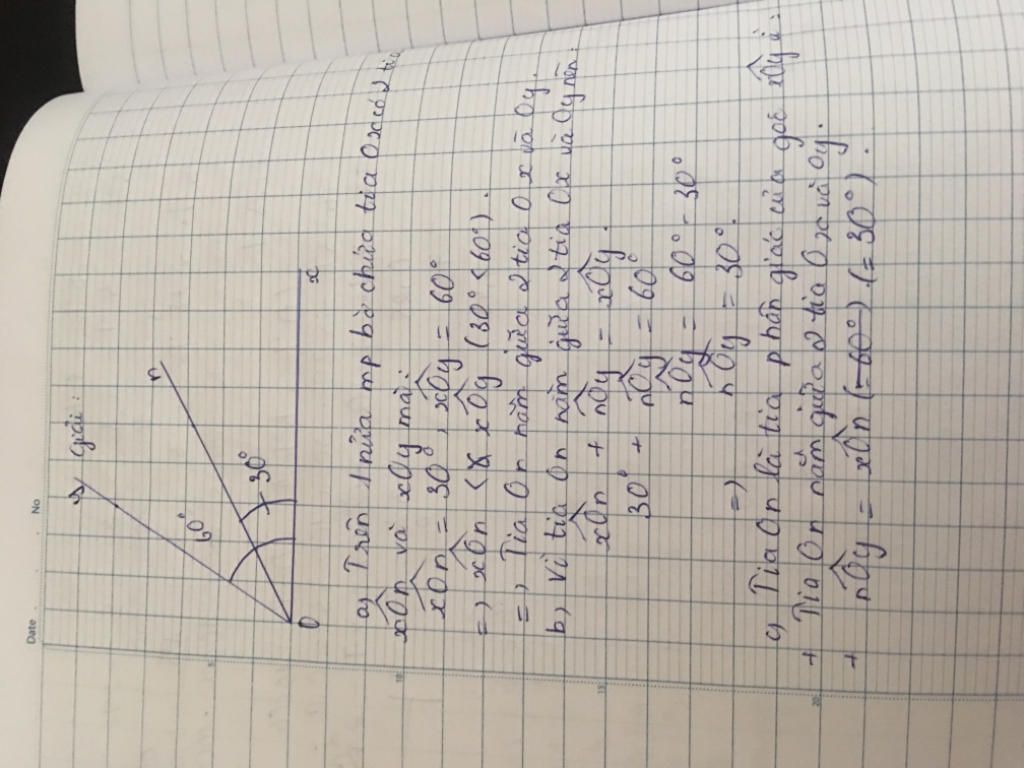 Date
No
Giải :
y
n
60°
30°
O
x
a, Trên 1 nửa mp bờ chứa tia Ox có 2 tia
xÔn và xOy mà :
xÔn = 30°, xÔy = 60°
=> xÔn < xÔy (30° < 60°).
=> Tia On nằm giữa 2 tia Ox và Oy.
b, Vì tia On nằm giữa 2 tia Ox và Oy nên:
xÔn + nÔy = xÔy.
30° + nÔy = 60°
nÔy = 60° - 30°
=> nÔy = 30°.
c, Tia On là tia phân giác của góc xÔy vì :
+ Tia On nằm giữa 2 tia Ox và Oy.
+ nÔy = xÔn (= 60°) (= 30°).
5
10
15
20